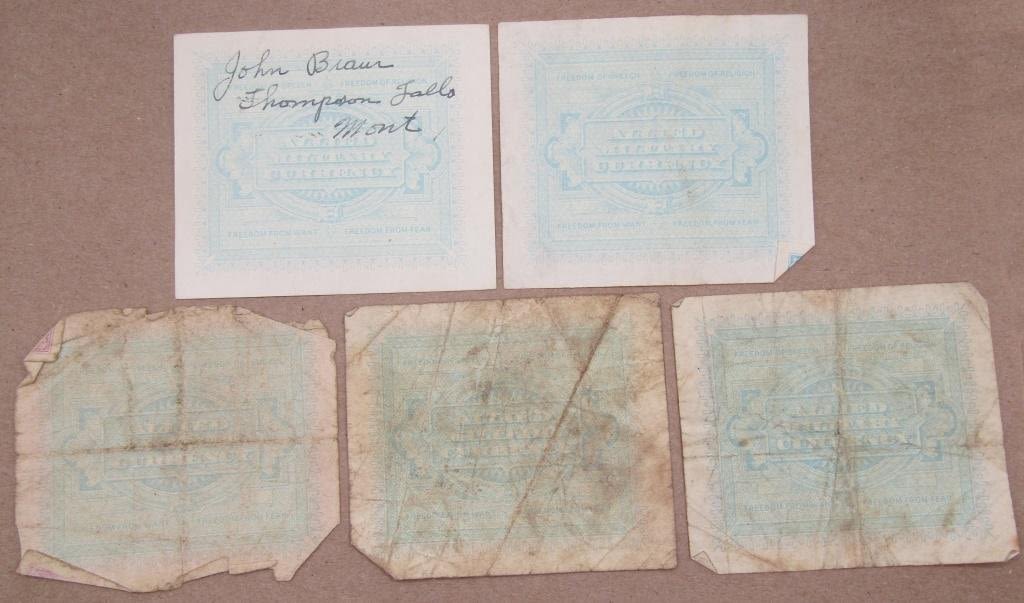 John Braun
Thompson Falls
Mont
FREEDOM OF SPEECH FREEDOM OF RELIGION
ALLIED
MILITARY
CURRENCY
FREEDOM FROM WANT FREEDOM FROM FEAR
FREEDOM OF SPEECH FREEDOM OF RELIGION
ALLIED
MILITARY
CURRENCY
FREEDOM FROM WANT FREEDOM FROM FEAR
ALLIED
CURRENCY
FREEDOM FROM WANT FREEDOM FROM FEAR
ALLIED
MILITARY
FREEDOM OF RELIGION
ALLIED
MILITARY
CURRENCY
FREEDOM FROM FEAR